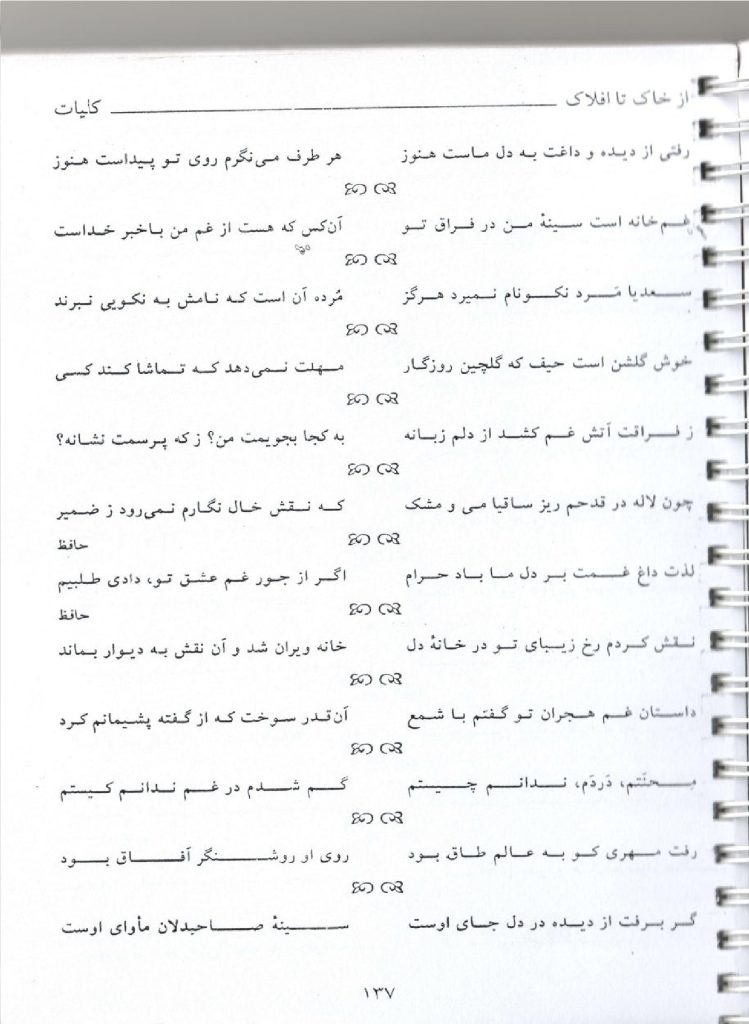 از خاک تا افلاک ـــــــــ کلیات
رفتی از دیده و داغت به دل ماست هنوز هر طرف می‌نگرم روی تو پیداست هنوز
غم‌خانه است سینهٔ من در فراق تو آن‌کس که هست از غم من باخبر خداست
سعدیا مَرد نکونام نمیرد هرگز مُرده آن است که نامش به نکویی نبرند
خوش گلشن است حیف که گلچین روزگار مهلت نمی‌دهد که تماشا کند کسی
ز فراقت آتش غم کشد از دلم زبانه به کجا بجویمت من؟ ز که پرسمت نشانه؟
چون لاله در قدحم ریز ساقیا می و مشک که نقش خال نگارم نمی‌رود ز ضمیر
حافظ
لذت داغ غمت بر دل ما باد حرام اگر از جور غم عشق تو، دادی طلبیم
حافظ
نقش کردم رخ زیبای تو در خانهٔ دل خانه ویران شد و آن نقش به دیوار بماند
داستان غم هجران تو گفتم با شمع آن‌قدر سوخت که از گفته پشیمانم کرد
محنَتم، دَردَم، ندانم چیستم گم شدم در غم ندانم کیستم
رفت مهری کو به عالم طاق بود روی او روشنگر آفاق بود
گر برفت از دیده در دل جای اوست سینهٔ صاحبدلان مأوای اوست
۱۳۷